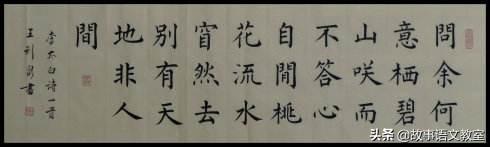 問余何
意栖碧
山咲而
不答心
自閒桃
花流水
窅然去
別有天
地非人
間
李太白詩一首
王書
头条 @故事语文教室